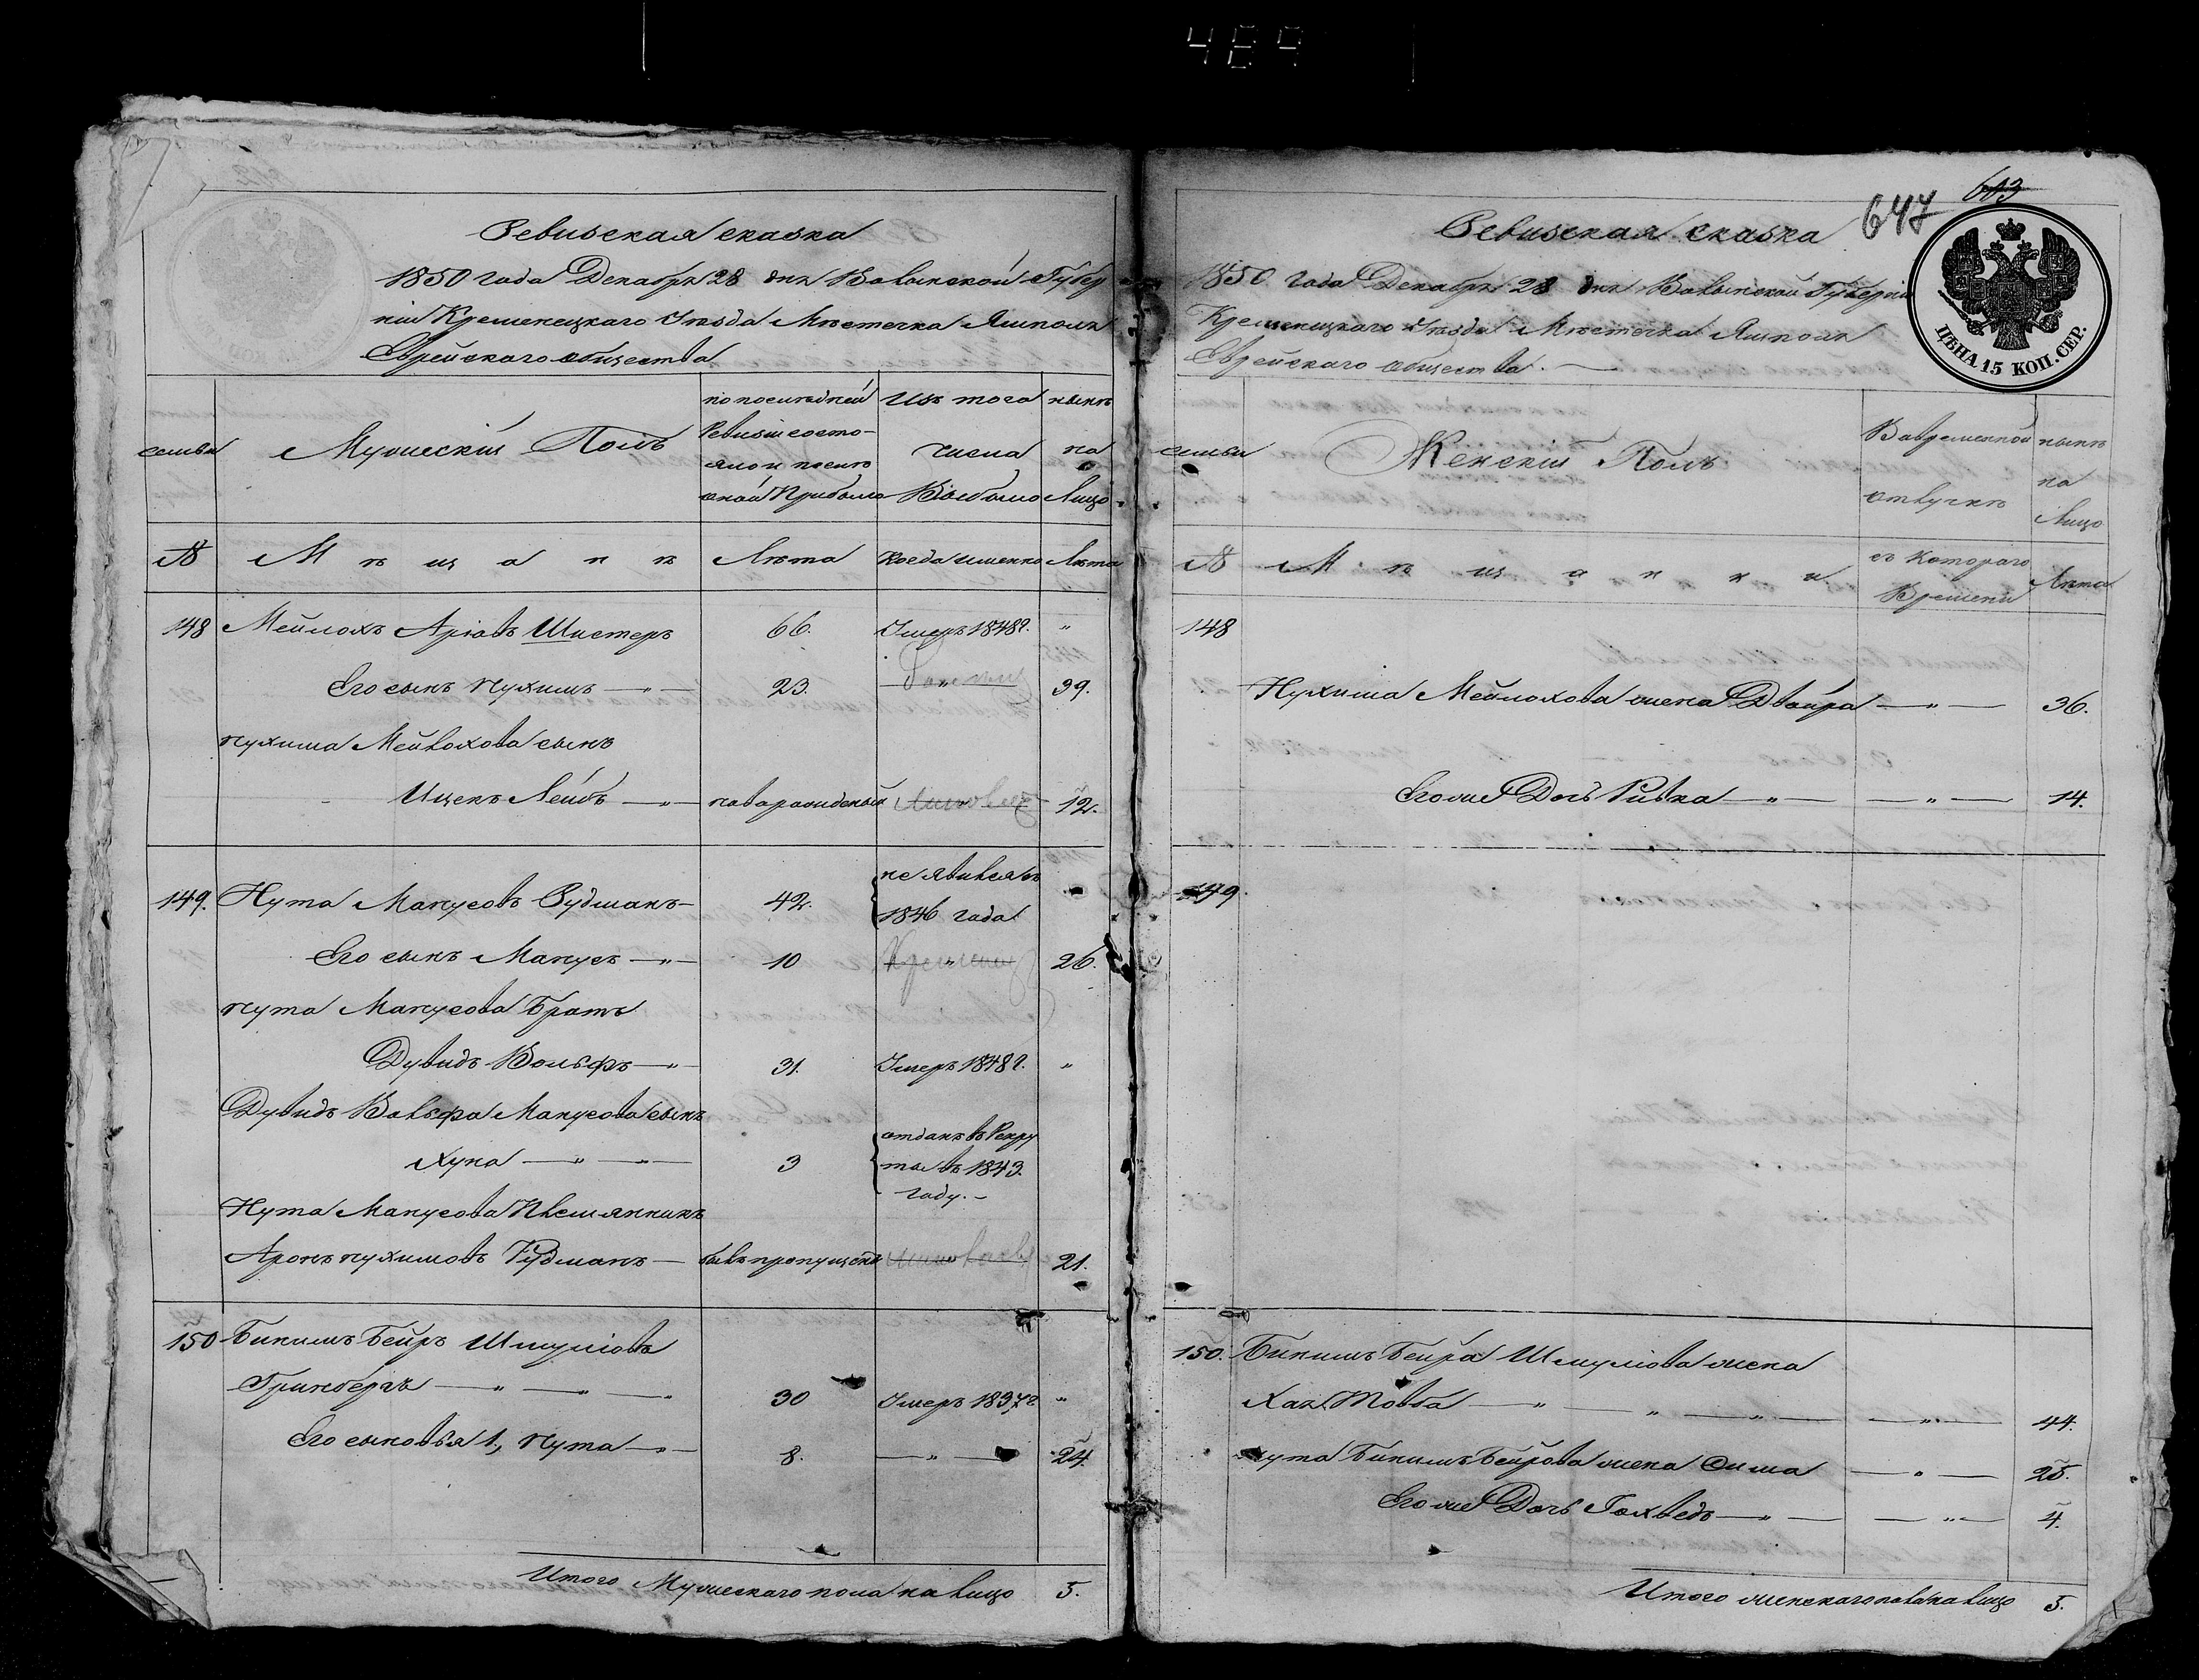 489
Ревизская сказка
1850 года Декабря 28 дня Волынской Губер
ніи Кременецкаго Уезда Местечка Ямполя
Еврейскаго общества
семьи
Мужескій Полъ
по последней
Ревизіи состо-
яло и после
оной Прибыло
Изъ того
числа
Выбыло
ныне
на
Лицо
№
Мещане
Лета
Когда именно
Лета
148 Мейлохъ Аріовъ Шистеръ 66. Умеръ 1848 г. "
Его сынъ Нухимъ — " — 23. — " — 39.
Нухима Мейлохова сынъ
Ицекъ Лейбъ — " — новорожденный — " — 12.
149. Нута Манусовъ Рудманъ — 42. не явился съ
1846 года
Его сынъ Манусъ — " — 10 — " — 26.
Нута Манусова Братъ
Дувидъ Вольфъ — " — 31. Умеръ 1848 г. "
Дувидъ Вольфа Манусова сынъ
Хуна — " — " — 3 отданъ въ Рекру
ты въ 1843.
году. –
Нута Манусова Племянникъ
Аронъ Нухимовъ Рудманъ — былъ пропущенъ 21.
150 Бинимъ Бейръ Шмуліовъ
Гринбергъ — " — " — " 30 Умеръ 1837 г "
Его сыновья 1, Нута — " — 8. — " — 24.
Итого Мужескаго пола на лицо 5.
613
647
Ревизская сказка
ЦѢНА 15 КОП. СЕР.
1850 года Декабря 28 дня Волынской Губерніи
Кременецкаго Уезда Местечка Ямполя
Еврейскаго общества. —
семьи
Женскій Полъ
Въ временной
отлучке
ныне
на
Лицо
№
Мещанки
съ котораго
Времени
Лета
148
Нухима Мейлохова жена Двойра — " — 36.
Его же Дочь Ривка — " — — " — 14.
149.
150. Бинимъ Бейра Шмуліова жена
Хая Товба — " — " — " — — " — 44.
Нута Бинимъ Бейрова жена Сима — " — 25.
Его же Дочь Іохведъ — " — — " — 4.
Итого женскаго пола на лицо 5.